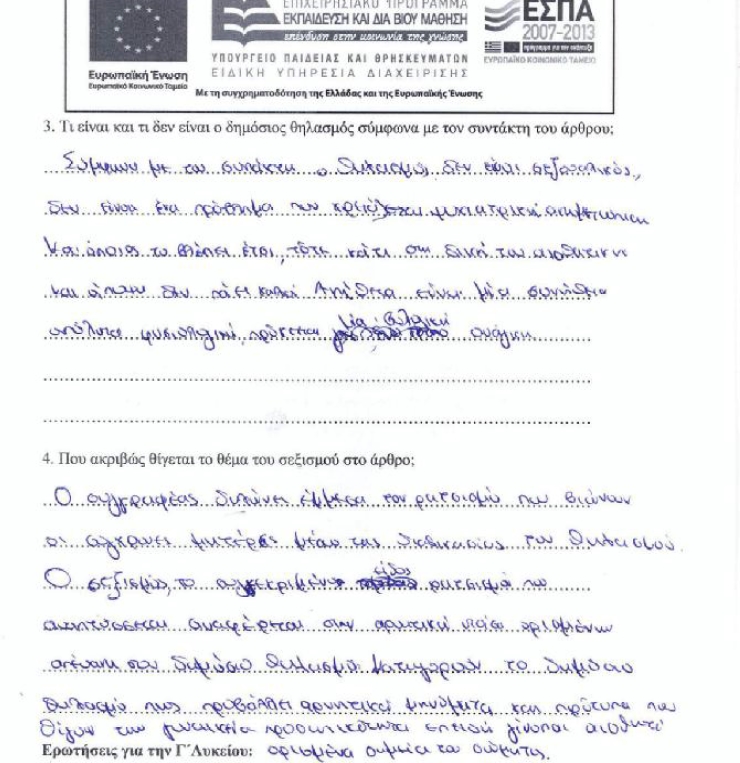 ΕΠΙΧΕΙΡΗΣΙΑΚΟ ΠΡΟΓΡΑΜΜΑ
ΕΚΠΑΙΔΕΥΣΗ ΚΑΙ ΔΙΑ ΒΙΟΥ ΜΑΘΗΣΗ
επένδυση στην κοινωνία της γνώσης
ΥΠΟΥΡΓΕΙΟ ΠΑΙΔΕΙΑΣ ΚΑΙ ΘΡΗΣΚΕΥΜΑΤΩΝ
ΕΙΔΙΚΗ ΥΠΗΡΕΣΙΑ ΔΙΑΧΕΙΡΙΣΗΣ
Ευρωπαϊκή Ένωση
Ευρωπαϊκό Κοινωνικό Ταμείο
ΕΣΠΑ
2007-2013
πρόγραμμα για την ανάπτυξη
ΕΥΡΩΠΑΪΚΟ ΚΟΙΝΩΝΙΚΟ ΤΑΜΕΙΟ
Με τη συγχρηματοδότηση της Ελλάδας και της Ευρωπαϊκής Ένωσης
3. Τι είναι και τι δεν είναι ο δημόσιος θηλασμός σύμφωνα με τον συντάκτη του άρθρου;
Σύμφωνα με τον συντάκτη ο θηλασμός δεν είναι σεξουαλικός,
δεν είναι ένα πρόβλημα που χρειάζεται ψυχιατρική
Και όποιος το βλέπει έτσι, τότε κάτι στη δική του αισθητική
και δεν πάει καλά Αντίθετα είναι μία συνήθεια
απόλυτα φυσιολογική, πρόκειται για μία βιολογική ανάγκη
4. Που ακριβώς θίγεται το θέμα του σεξισμού στο άρθρο;
Ο συγγραφέας έμμεσα τον ρατσισμό που βιώνουν
οι σύγχρονες μητέρες μέσω της διαδικασίας του θηλασμού.
Ο σεξισμός, το συγκεκριμένο είδος ρατσισμού που
αναπτύσσεται αναφέρεται στην αρνητική ορισμένων
απέναντι στον δημόσιο θηλασμό κατηγορούν το δημόσιο
θηλασμό πως προβάλλει αρνητικά μηνύματα και πρότυπα που
θίγουν την γυναικεία προσωπικότητα επειδή γίνονται αισθητά
Ερωτήσεις για την Γ΄Λυκείου: ορισμένα σημεία του σώματος.